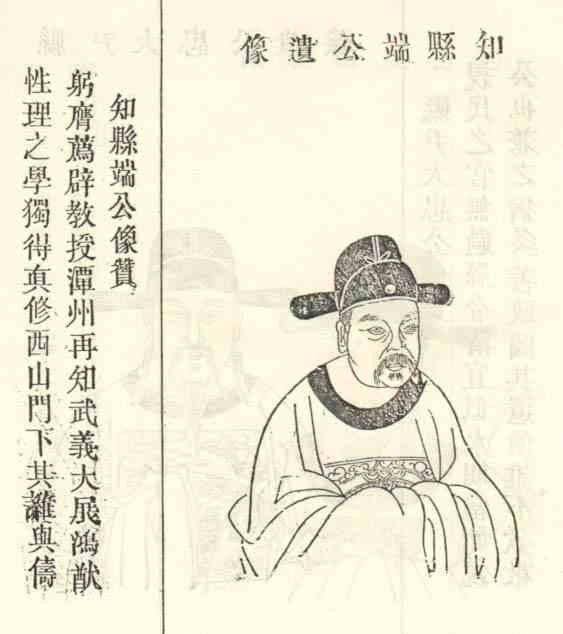 知縣端公遺像
知縣端公像贊
躬膺薦辟教授潭州再知武義大展鴻猷
性理之學獨得眞修西山門下共誰與儔